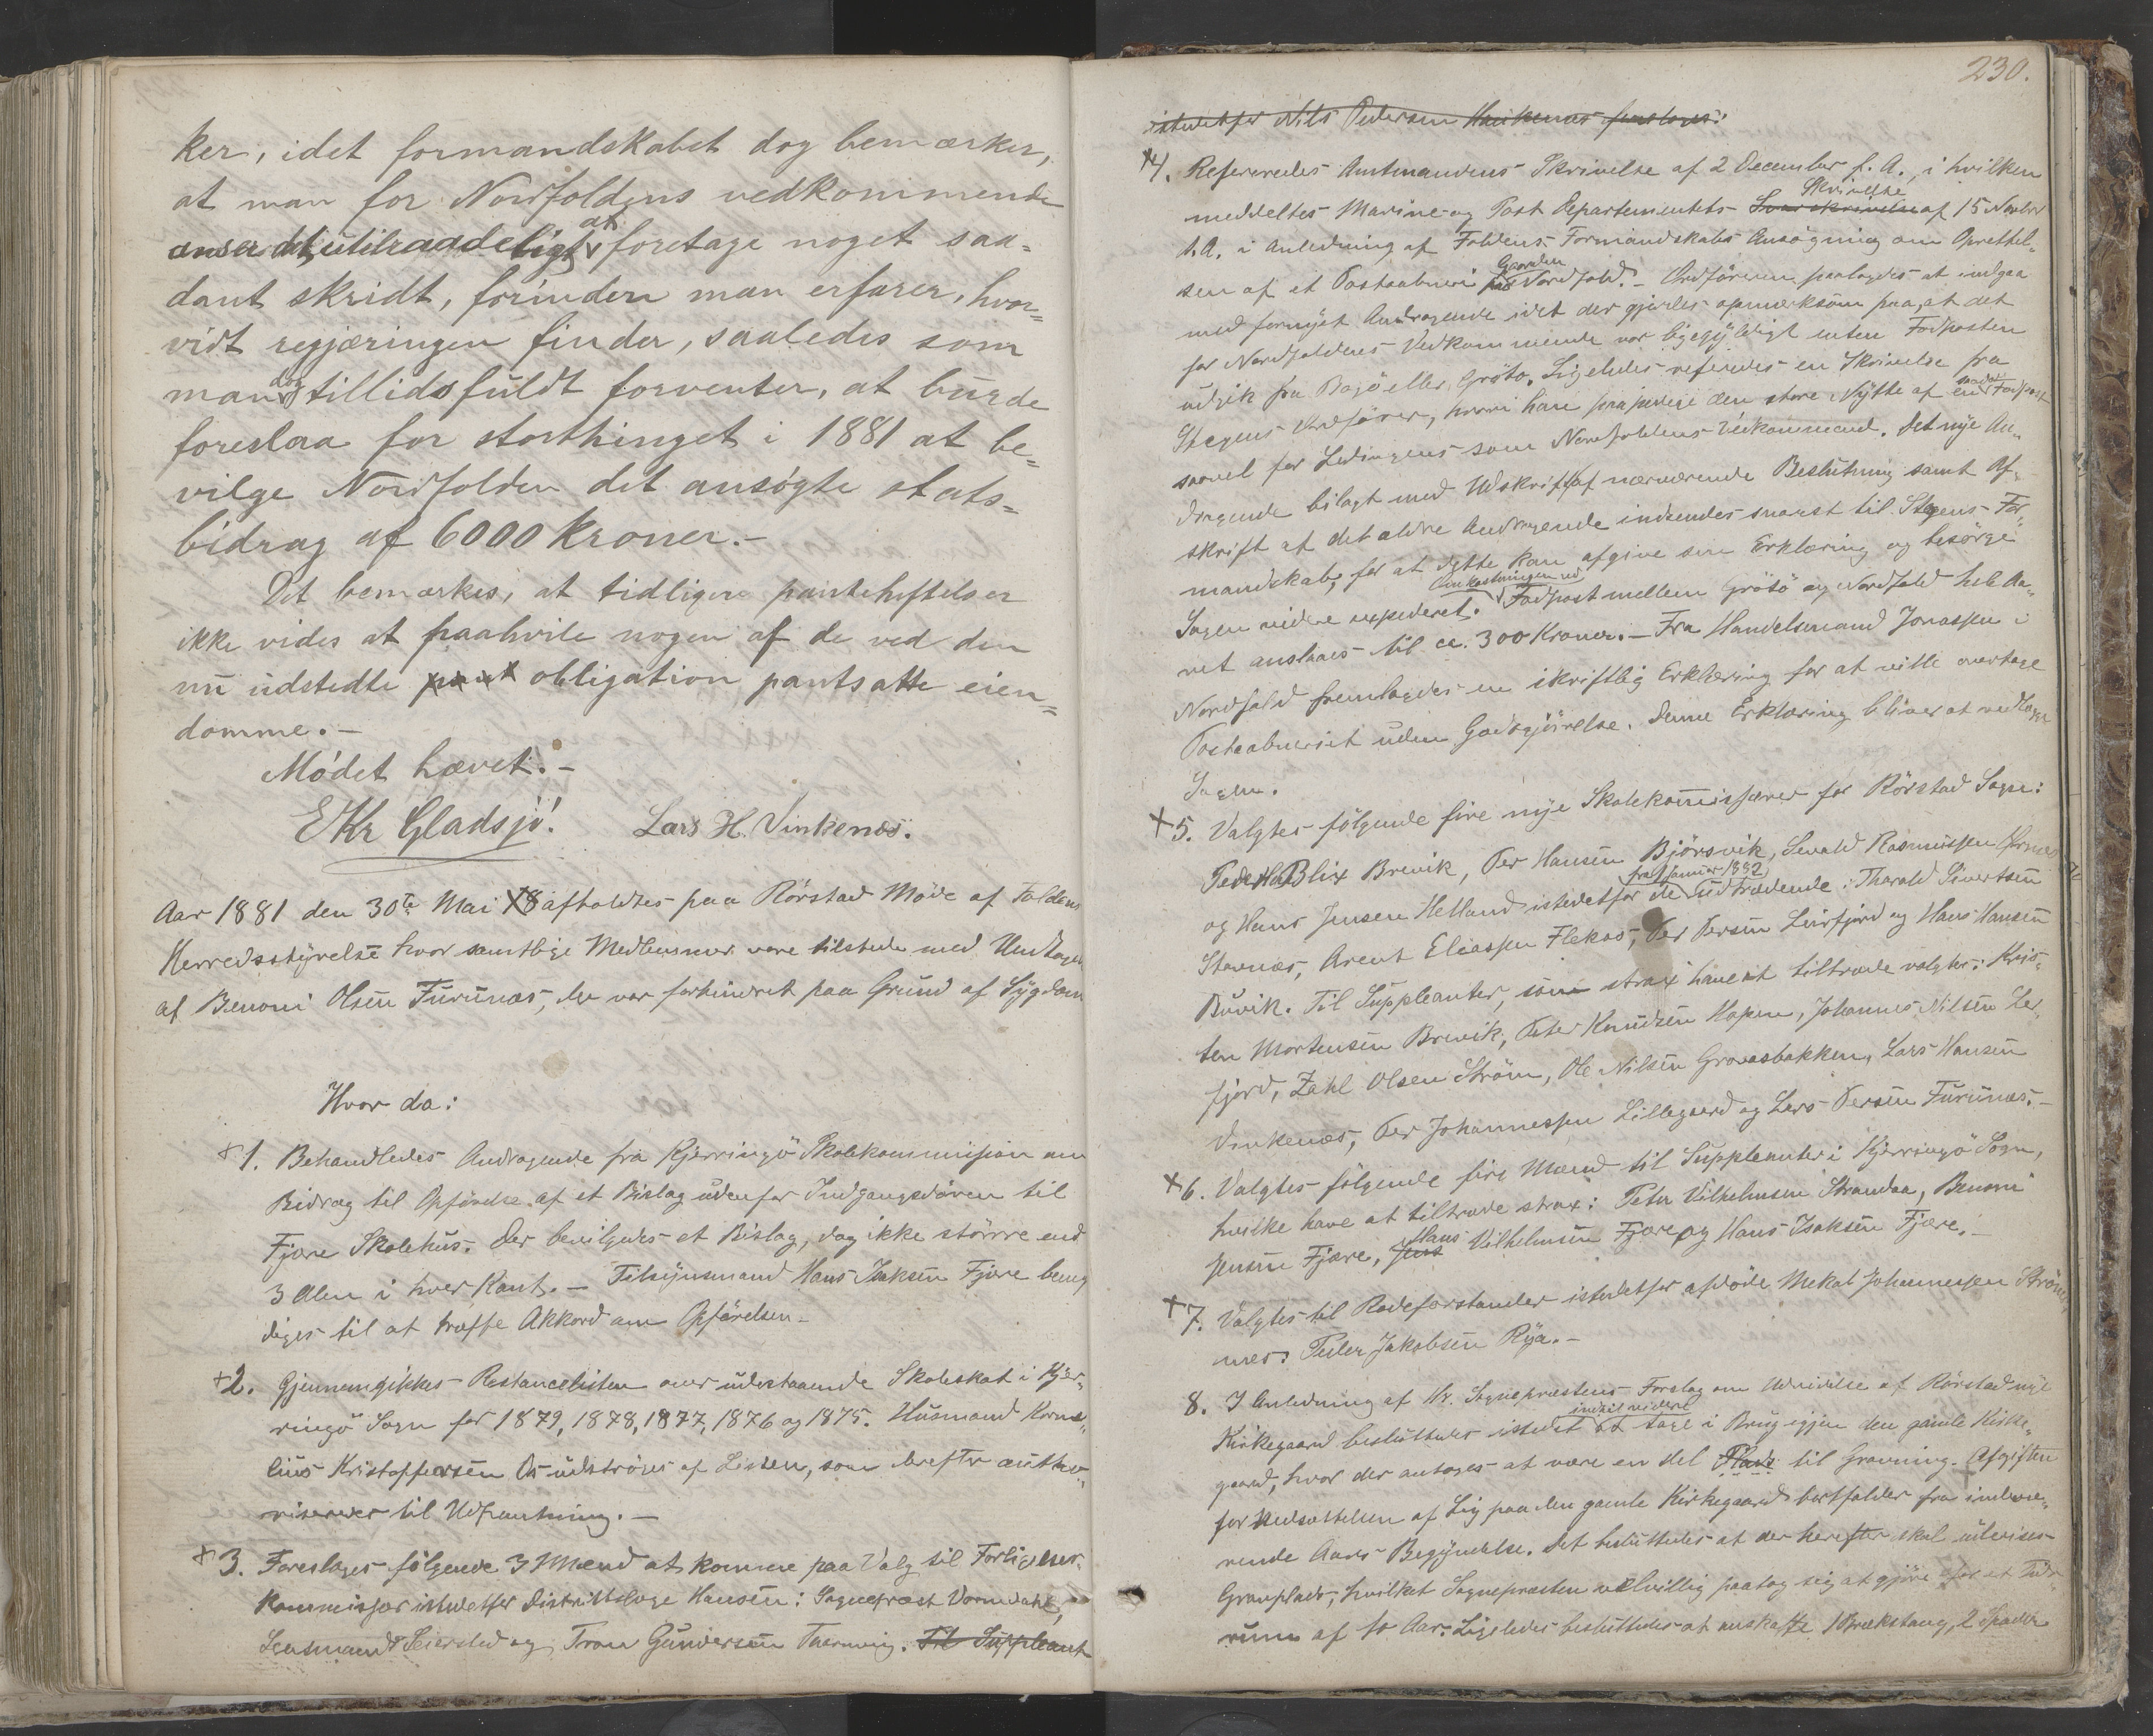 ker, idet formandskabet dog bemærker,
at man for Nordfoldens vedkommende
anser det utilraadeligt at foretage noget saa-
dant skridt, forinden man erfarer, hvor-
vidt regjæringen finder, saaledes som
man dog tillidsfuldt forventer, at burde
foreslaa for storthinget i 1881 at be-
vilge Nordfolden det ansøgte stats-
bidrag af 6000 Kroner.-
Det bemærkes, at tidligere pantehæftelser
ikke vides at paahvile nogen af de ved den
nu udstedte pant obligation pantsatte eien-
domme.-
Mødet hævet.-
EKr Gladsjø. Lars H. Vinkenæs.
Aar 1881 den 30te Mai afholdtes paa Rørstad Møde af Foldens
Herredsstyrelse hvor samtlige Medlemmer vare tilstede med Undtagen
af Benoni Olsen Furunæs, der var forhindret paa Grund af Sygdom
Hvor da:
+1. Behandledes Andragende fra Kjerringø Skolekommission om
Bidrag til Opførelse af et Bislag udenfor Indgangsdøren til
Fjære Skolehus. Der bevilgedes et Bislag, dog ikke større end
3 Alen i hver Kant.- Tilsynsmand Hans Isaksen Fjære bemyn
diges til at træffe Akkord om Opførelsen.-
+2. Gjennemgikkes Restancelisten over udestaaende Skoleskat i Kjer-
ringø Sogn for 1879, 1878, 1877, 1876 og 1875. Husmand Korne-
lius Kristoffersen Os udstrøges af Listen, som derefter autho-
riseredes til Udpantning.-
+3. Foresloges følgende 3 Mænd at komme paa Valg til Forligelses-
kommissær istedetfor Distriktslæge Hansen: Sogneprest Vormdahl,
Lensmand Seiersted og Tron Gundersen Tharnvig. Til Suppleant
230.
istedetfor Nils Pedersen Haukenæs foresloges:
+4. Refereredes Amtmandens Skrivelse af 2 December f. A., i hvilken
meddeltes Marine- og Post Departementets Svarskrivelse Skrivelse af 15 Novbr
s. A. i Anledning af Foldens Formandskabs Ansøgning om Oprettel-
sen af et Postaabneri paa Gaarden Nordfold.- Ordføreren paalagdes at indgaa
med fornyet Andragende idet der gjordes opmærksom paa, at det
for Nordfoldens Vedkommende var ligegyldigt enten Fodposten
udgik fra Bogø eller Grøtø. Ligeledes refereredes en Skrivelse fra
Stegens Ordfører, hvori han paapeger den store Nytte af en saadan Fodpost
saavel for Ledingens som Nordfoldens Vedkommend. Det nye An-
dragende bilagt med Udskrift af nærværende Beslutning samt Af-
skrift af det ældre Andragende indsendes snarest til Stegens For-
mandskab, for at dette kan afgive sin Erklæring og besørge
Sagen videre expederet. Omkostningen ved Fodpost mellem Grøtø og Nordfold hele Aa-
ret anslaaes til ca. 300 Kroner.- Fra Handelsmand Jonassen i
Nordfold fremlagdes en skriftlig Erklæring for at ville overtage
Postaabneriet uden Godtgjørelse. Denne Erklæring bliver at vedlægge
Sagen.
+5. Valgtes følgende fire nye Skolekommissærer for Rørstad Sogn:
Peder Blix Brevik, Per Hansen Bjørsvik, Sevald Rasmussen
og Hans Jensen Helland istedetfor de fra 1 Januar 1882 udtrædende: Tharald Sivertsen
Stavnæs, Arent Eliassen Flekas, Per Persen Leirfjord og Hans Hansen
Buvik. Til Suppleanter, som strax have at tiltræde valgtes: Kris-
ten Mortensen Brevik, Peter Knudsen Hopen, Johannes Nilsen Ler-
fjord, Zahl Olsen Strøm, Ole Nilsen Grovasbakken, Lars Hansen
Vinkenæs, Per Johannessen Lillegaard og Lars Persen Furunæs.-
+6. Valgtes følgende fire Mænd til Suppleanter i Kjerringø Sogn,
hvilke have at tiltræde strax: Peter Vilhelmsen Strandaa, Benoni
Jensen Fjære, Jens Hans Vilhelmsen Fjære og Hans Isaksen Fjære.-
+7. Valgtes til Rodeforstander istedetfor afdøde Mekal Johannessen
næs: Peder Jakobsen Rya.-
8. I Anledning af Hr. Sogneprestens Forslag om Udvidelse af Rørstad nye
Kirkegaard besluttedes istedet indtil videre at tage i Brug igjen den gamle Kirke-
gaard, hvor der antoges at være en del Plads til Gravning. Afgiften
for Nedsættelsen af Lig paa den gamle Kirkegaard bortfalder fra indevæ-
rende Aars Begyndelse. Det besluttedes at der herefter skal udvises
Gravplads, hvilket Sognepresten velvillig paatog sig at gjøre for et Tids-
rum af 10 Aar. Ligeledes besluttedes at anskaffe 1 Brækstang, 2 Spader